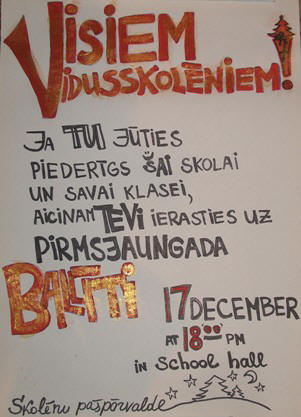 VISIEM
VIDUSSKOLĒNIEM!
JA TU JŪTIES
PIEDERĪGS ŠAI SKOLAI
UN SAVAI KLASEI,
AICINAM TEVI IERASTIES UZ
PIRMSJAUNGADA
BALĪTTI
17 DECEMBER
AT 18⁰⁰ PM
in SCHOOL hall
Skolēnu pašpārvalde